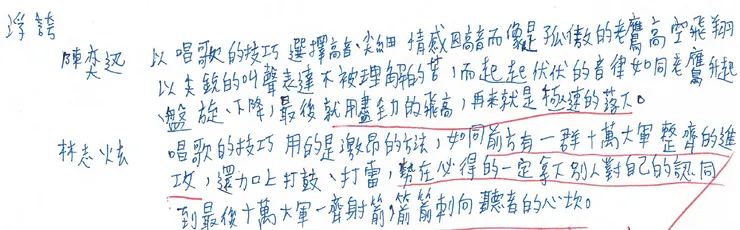 浮誇
陳奕迅 以唱歌的技巧選擇高音、尖細 情感因高音而像是孤傲的老鷹高空飛翔
以尖銳的叫聲表達不被理解的苦,而起起伏伏的音律如同老鷹升起
、盤旋、下降,最後就用盡全力的飛高,再來就是極速的落下。
林志炫 唱歌的技巧 用的是激昂的方法,如同前方有一群十萬大軍整齊的進
攻,還加上打鼓、打雷,勢在必得的一定拿下別人對自己的認同
到最後十萬大軍一齊射箭,箭箭刺向聽者的心坎。